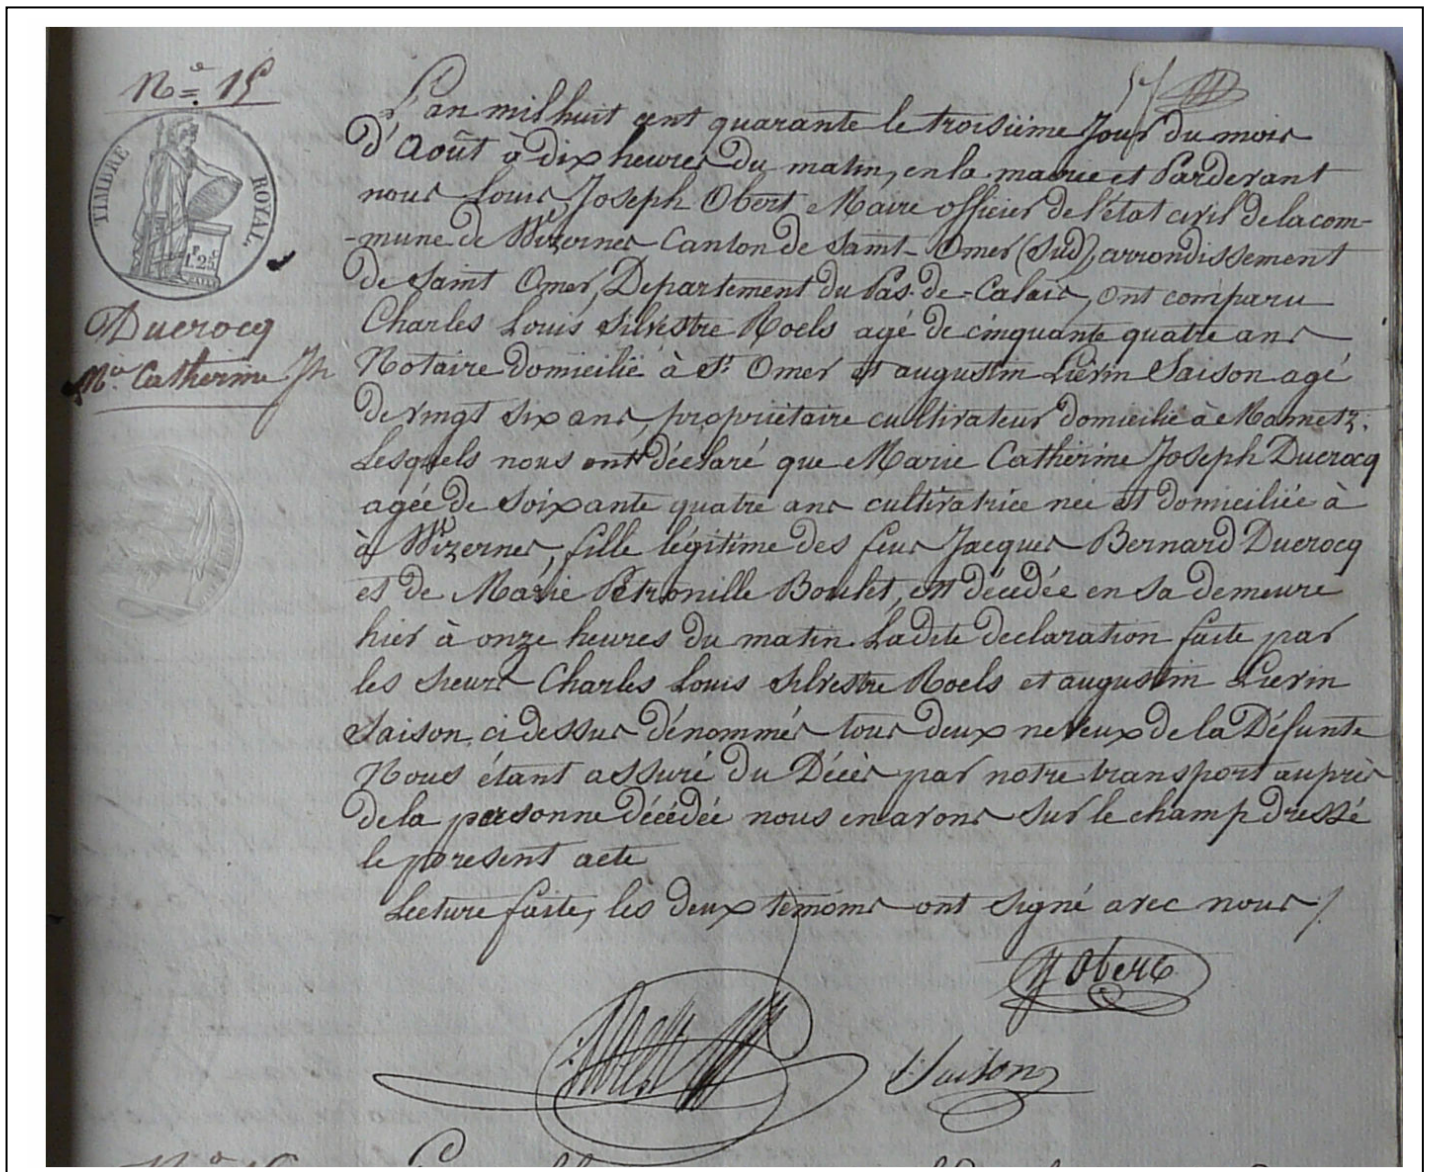 N.° 15
TIMBRE ROYAL
1F 25C
Ducrocq
M.ie Catherine Jh
L'an mil huit cent quarante le troisième Jour du mois
d'Août à dix heures du matin, en la mairie et Pardevant
nous Louis Joseph Obert Maire officier de l'état civil de la com-
-mune de Wizernes Canton de Saint-Omer (Sud), arrondissement
de Saint Omer, Departement du Pas-de-Calais, ont comparu
Charles Louis Silvestre Roels agé de cinquante quatre ans
Notaire domicilié à St Omer et augustin Liévin Saison agé
de vingt six ans, propriétaire cultivateur domicilié à Mametz.
Lesquels nous ont déclaré que Marie Catherine Joseph Ducrocq
agée de soixante quatre ans cultivatrice née et domiciliée à
à Wizernes, fille légitime des feus Jacques Bernard Ducrocq
et de Marie Pétronille Boulet, est décédée en sa demeure
hier à onze heures du matin. Ladite declaration faite par
les sieurs Charles Louis Silvestre Roels et augustin Lievin
Saison, ci dessus dénommés tous deux neveux de la Défunte
Nous étant assuré du Décès par notre transport auprès
de la personne décédée nous en avons sur le champ dressé
le present acte
Lecture faite, les deux témoins ont signé avec nous /.
Obert
Roels
Saison